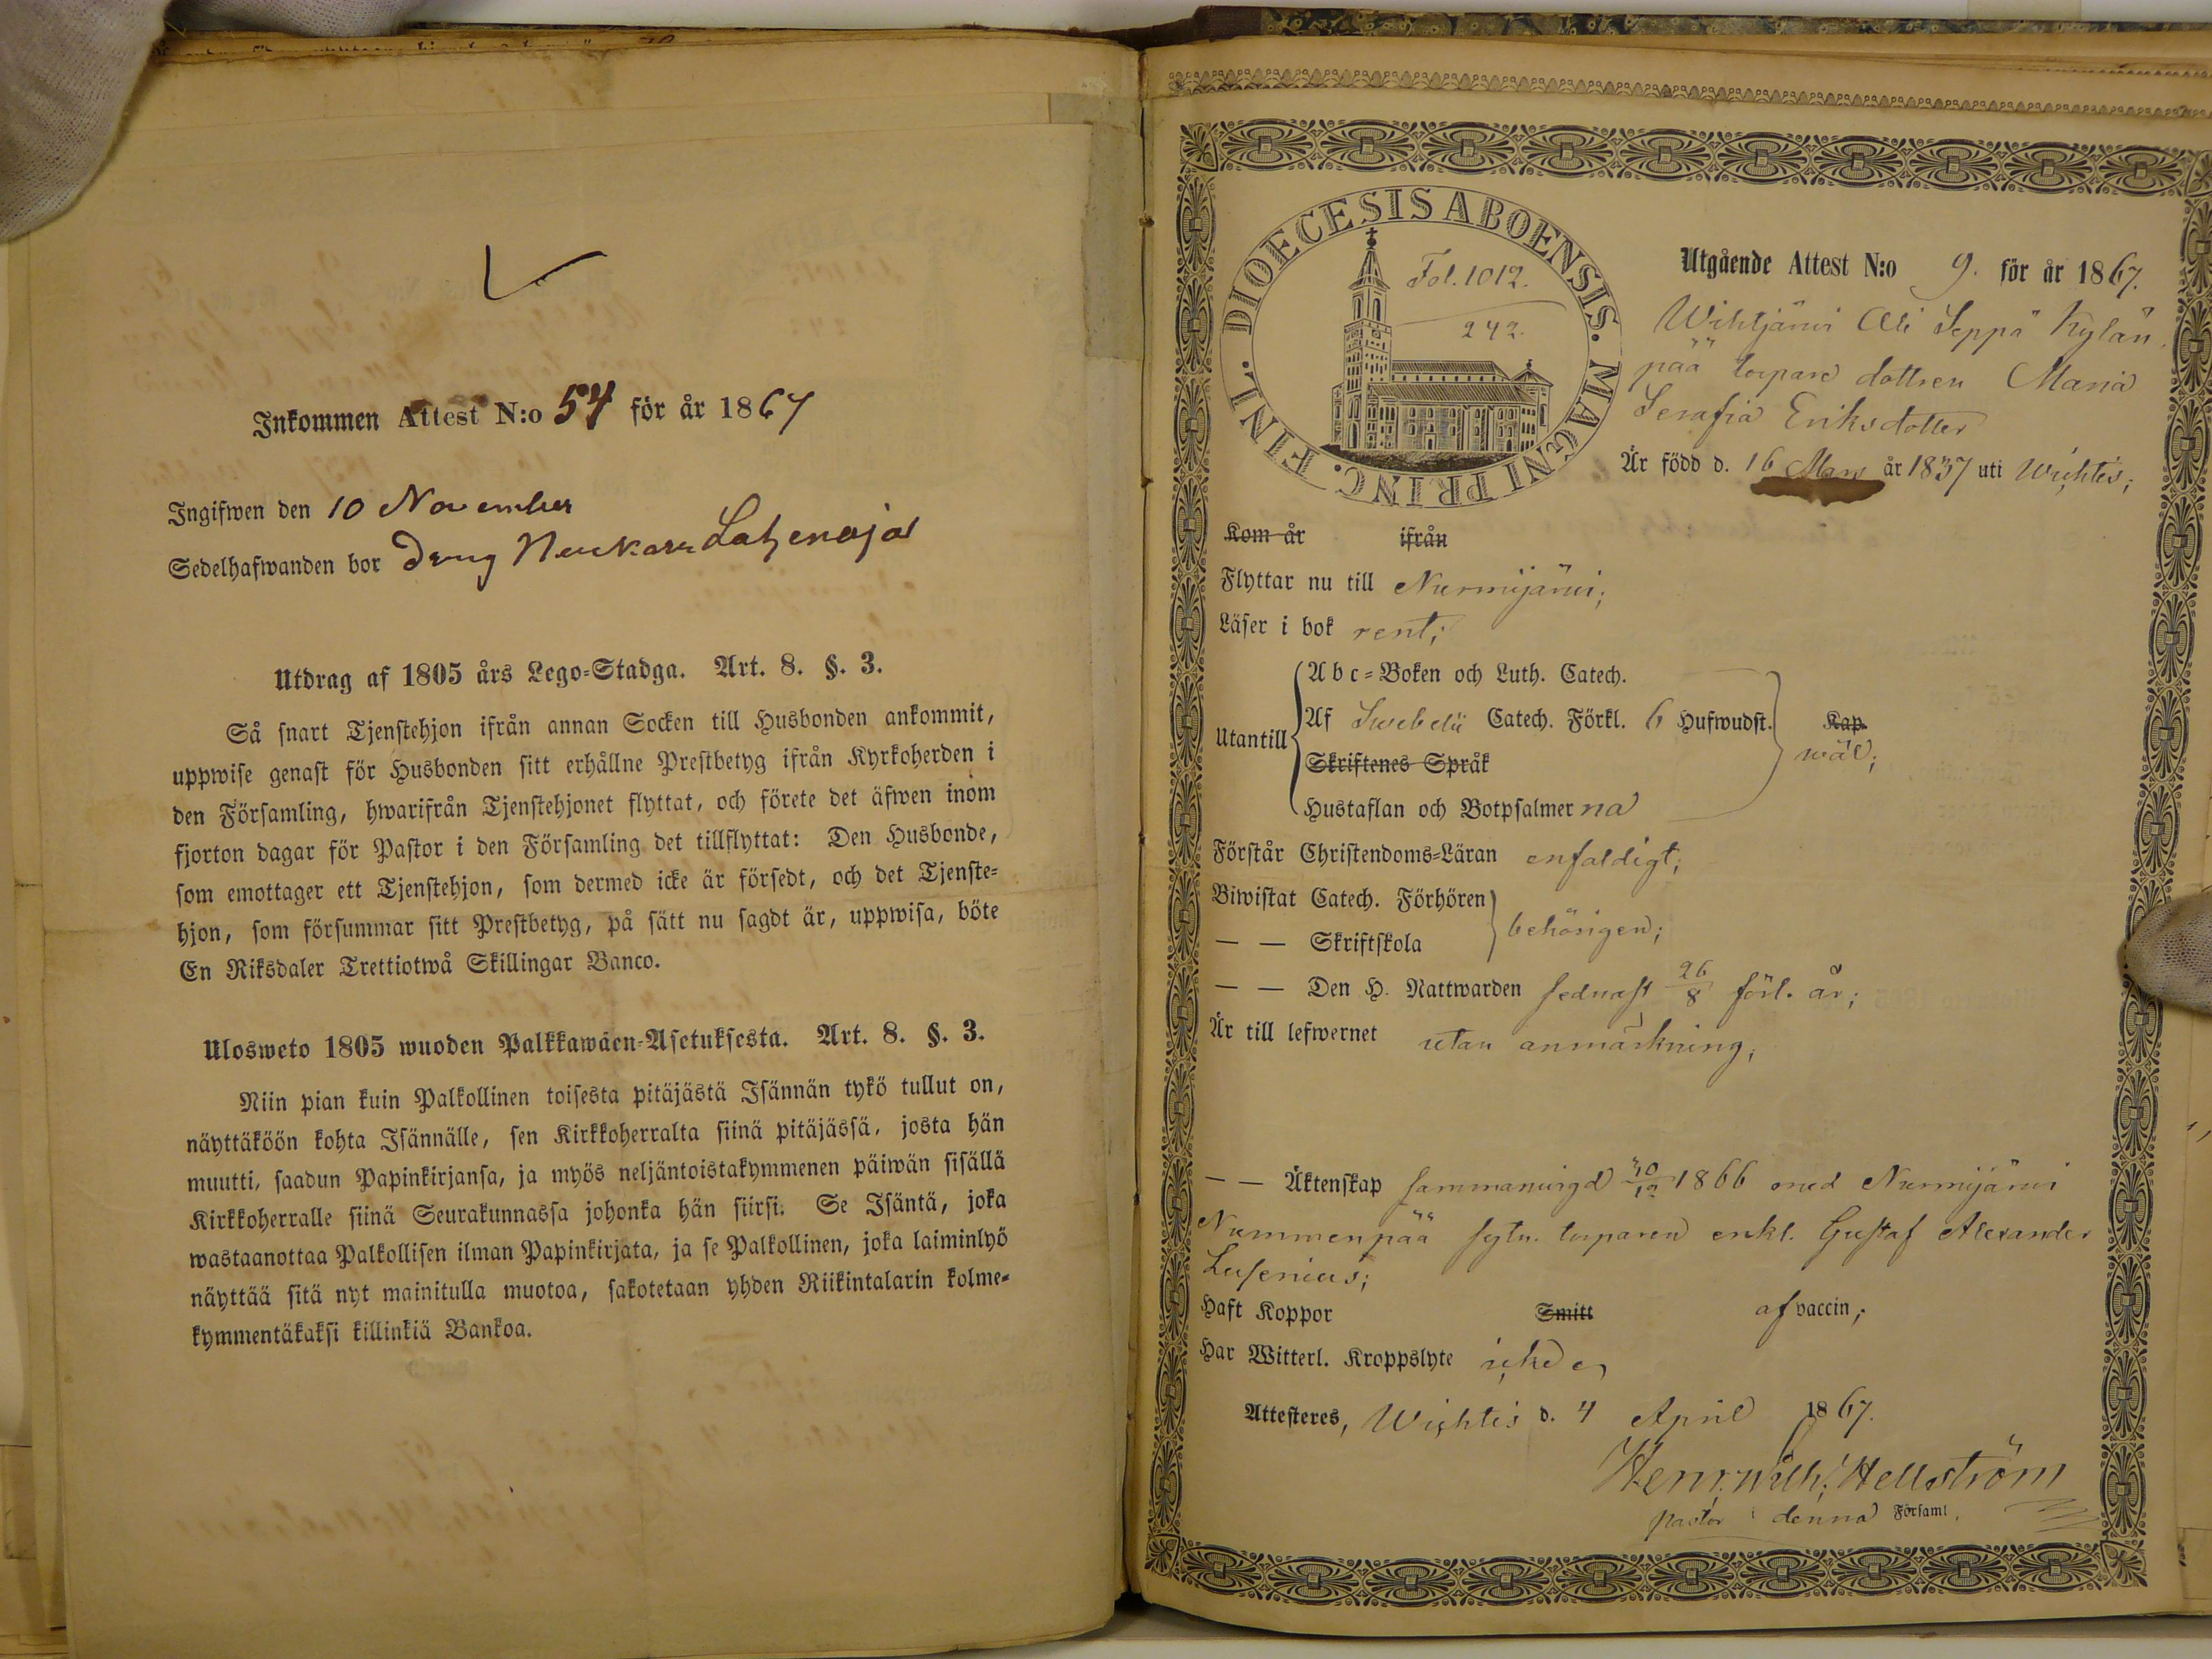 Inkommen Attest N:o 54 för år 1867
Ingifwen den 10 November
Sedelhafwanden bor Dräng
Utdrag af 1805 års Lego-Stadga. Art. 8. §. 3.
Så snart Tjenstehjon ifrån annan Socken till Husbonden ankommit,
uppwise genast för Husbonden sitt erhållne Prestbetyg ifrån Kyrkoherden i
den Församling, hwarifrån Tjenstehjonet flyttat, och förete det äfwen inom
fjorton dagar för Pastor i den Församling det tillflyttat: Den Husbonde,
som emottager ett Tjenstehjon, som dermed icke är försedt, och det Tjenste-
hjon, som försummar sitt Prestbetyg, på sätt nu sagdt är, uppwisa, böte
En Riksdaler Trettiotwå Skillingar Banco.
Ulosweto 1805 wuoden Palkkawäen-Asetuksesta. Art. 8. §. 3.
Niin pian kuin Palkollinen toisesta pitäjästä Isännän tykö tullut on,
näyttäköön kohta Isännälle, sen Kirkkoherralta siinä pitäjässä, josta hän
muutti, saadun Papinkirjansa, ja myös neljäntoistakymmenen päiwän sisällä
Kirkkoherralle siinä Seurakunnassa johonka hän siirsi. Se Isäntä, joka
wastaanottaa Palkollisen ilman Papinkirjata, ja se Palkollinen, joka laiminlyö
näyttää sitä nyt mainitulla muotoa, sakotetaan yhden Riikintalarin kolme-
kymmentäkaksi killinkiä Bankoa.
DIOECESIS ABOENSIS. MAGNI PRINC. FINL.
Fol. 1012.
242.
Utgående Attest N:o 9. för år 1867.
Wihtjärvi Ali Seppä Kylän
pää torpare dottren Maria
Serafia Eriksdotter
Är född d. 16 Mars år 1837 uti Wichtis;
Kom år ifrån
Flyttar nu till Nurmijärvi;
Läser i bok rent;
Utantill
Abc-Boken och Luth. Catech.
Af Swebelii Catech. Förkl. 6 Hufwudst. Kap.
Skriftenes Språk wäl;
Hustaflan och Botpsalmerna
Förstår Christendoms-Läran enfaldigt;
Biwistat Catech. Förhören
— — Skriftskola behörigen;
— — Den H. Nattwarden sednast 26/8 förl. år;
Är till lefwernet utan anmärkning;
— — Äktenskap sammanvigd 30/12 1866 med Nurmijärvi
Nummenpää sytn. torparen enkl. Gustaf Alexander
Lusenius;
Haft Koppor Smitt af vaccin;
Har Witterl. Kroppslyte icke
Attesteres, Wichtis d. 4 April 1867.
Henr. Wilh. Hellström
pastor i denna Församl.